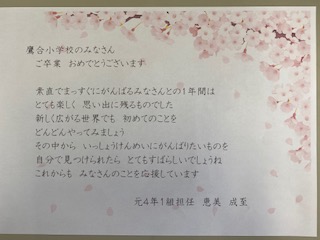 鷹合小学校のみなさん
ご卒業 おめでとうございます
素直でまっすぐにがんばるみなさんとの1年間は
とても楽しく 思い出に残るものでした
新しく広がる世界でも 初めてのことを
どんどんやってみましょう
その中から いっしょうけんめいにがんばりたいものを
自分で見つけられたら とてもすばらしいでしょうね
これからも みなさんのことを応援しています
元4年1組担任 恵美 成至